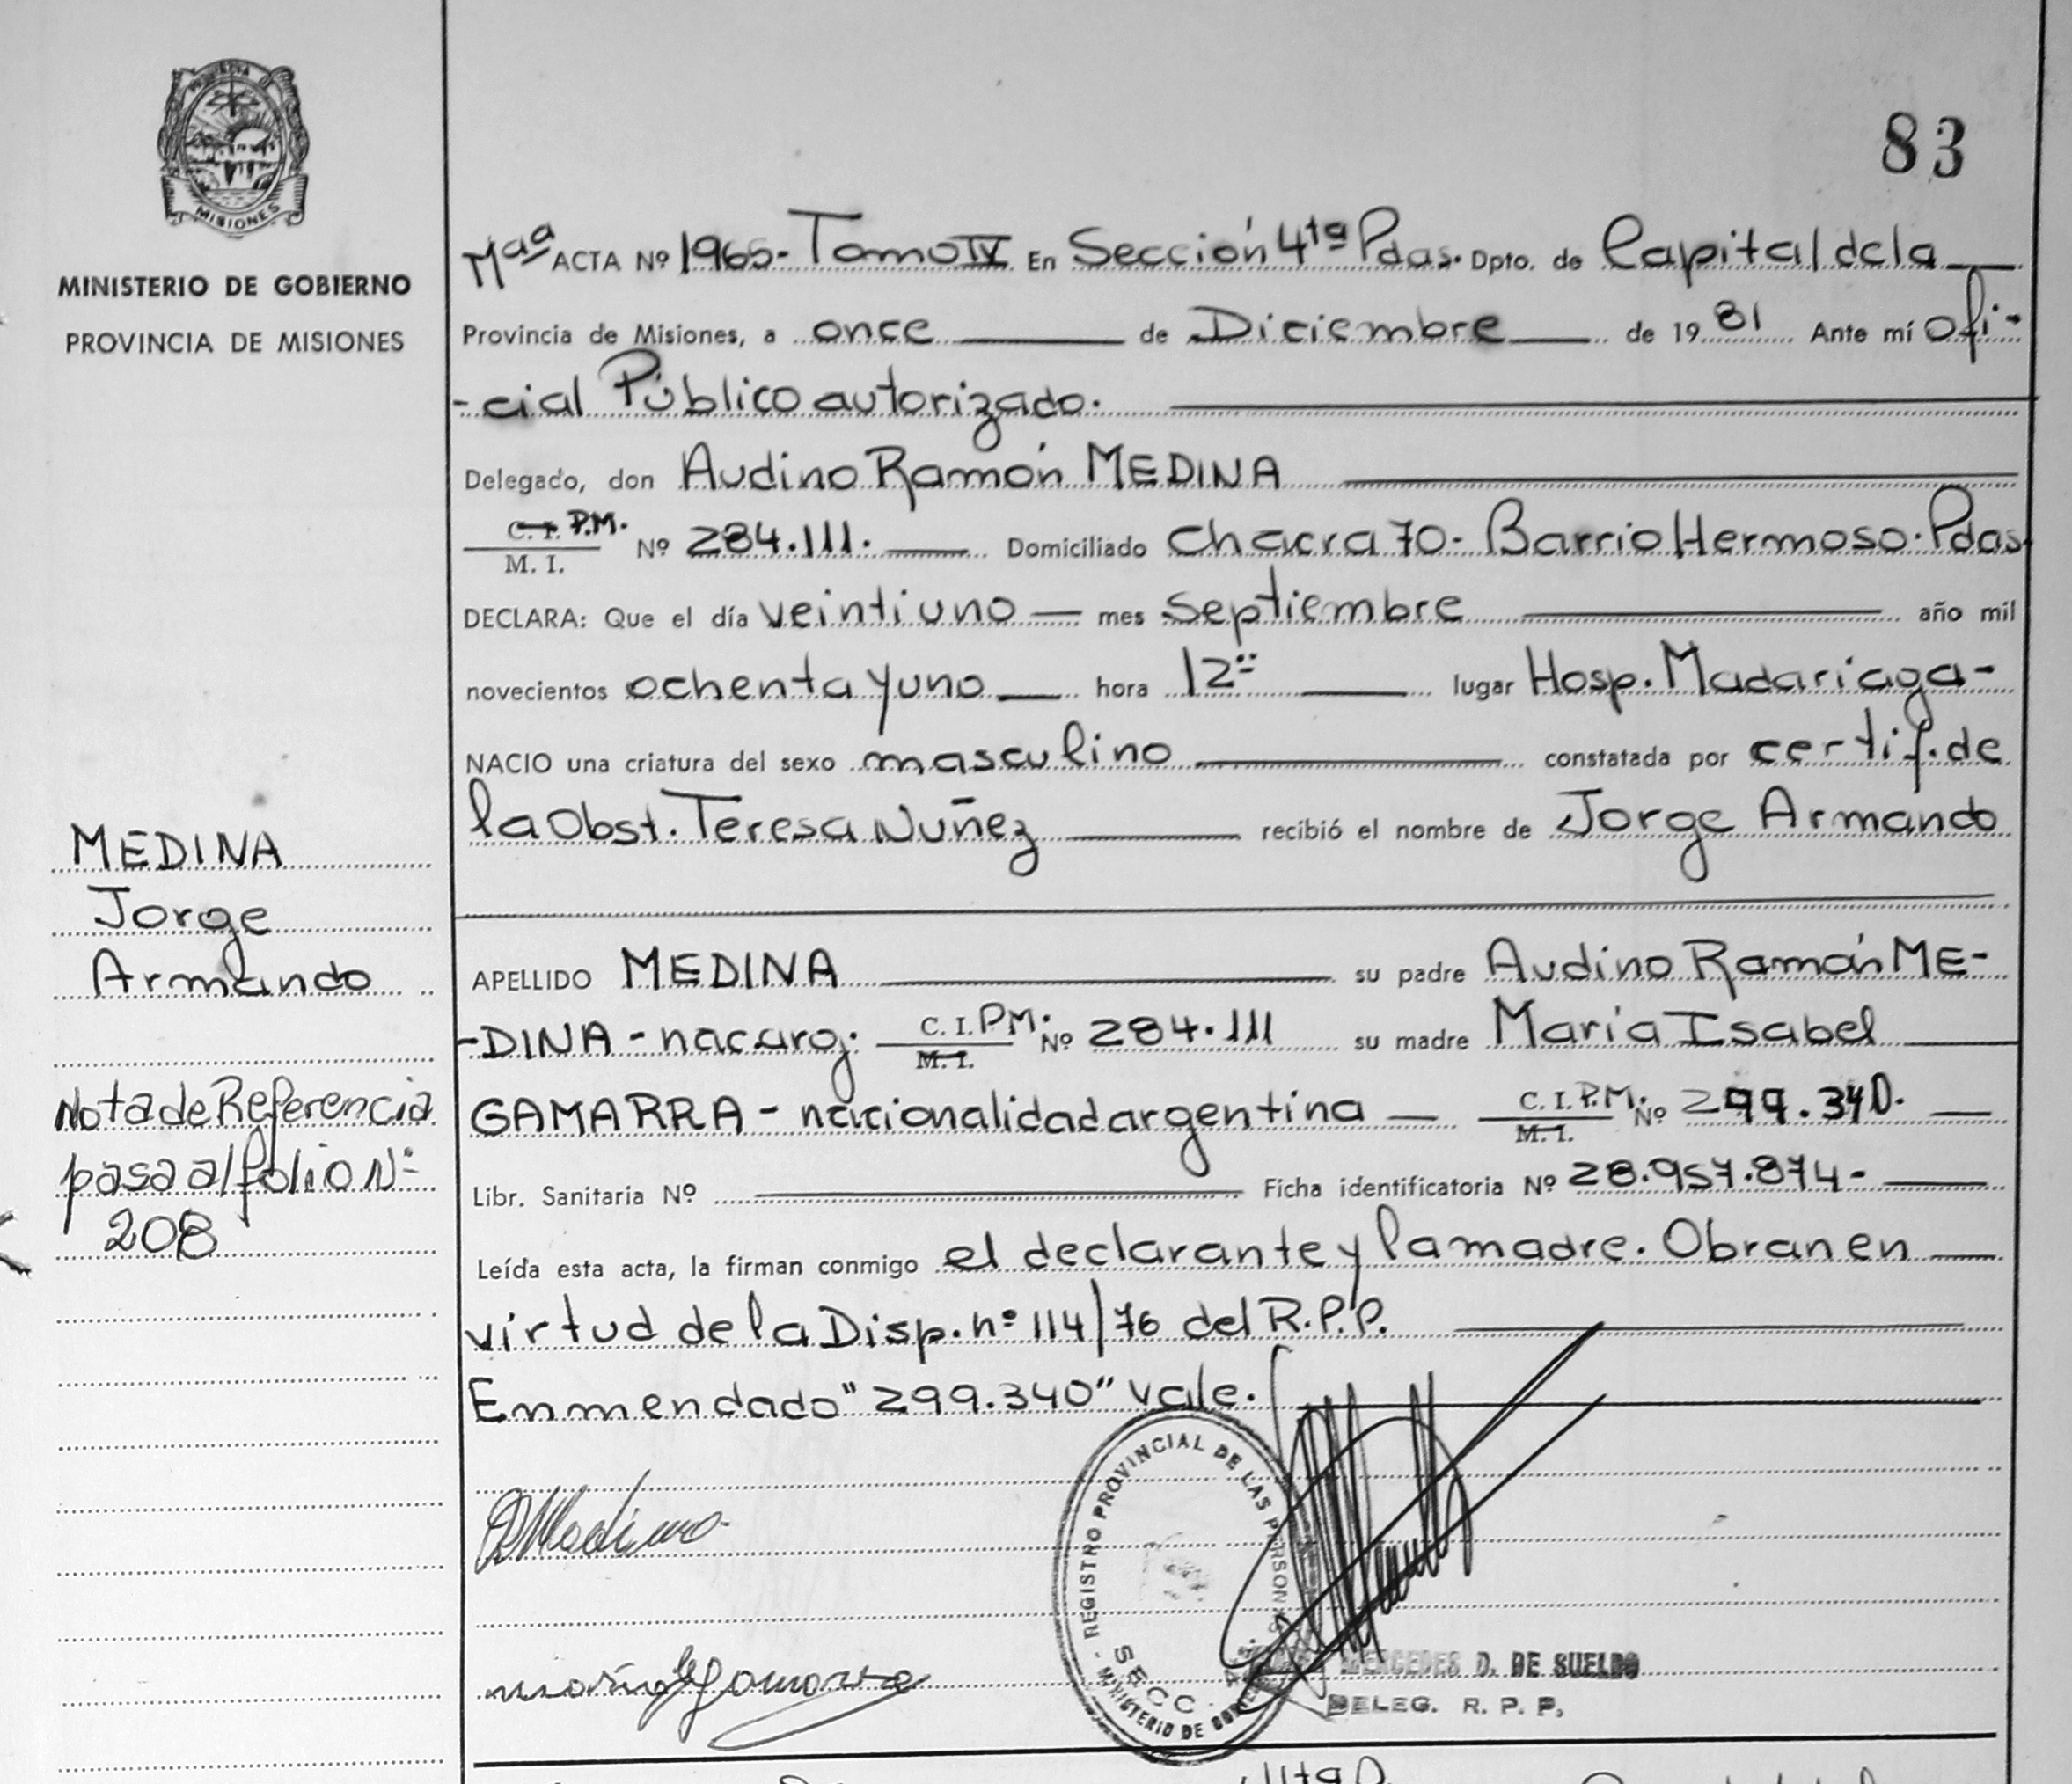 83
MISIONES
MINISTERIO DE GOBIERNO
PROVINCIA DE MISIONES
Mªª ACTA Nº 1965- Tomo IV En Sección 4ta Pdas. Dpto. de Capital de la
Provincia de Misiones, a once de Diciembre de 1981 Ante mí ofi-
-cial Público autorizado.
Delegado, don Audino Ramón MEDINA
C. I. P.M.
M. I. Nº 284.111. Domiciliado Chacra 70- Barrio Hermoso. Pdas.
DECLARA: Que el día veintiuno mes septiembre año mil
novecientos ochenta y uno hora 12 lugar Hosp. Madariaga-
NACIO una criatura del sexo masculino constatada por certif. de
la Obst. Teresa Nuñez recibió el nombre de Jorge Armando
MEDINA
Jorge
Armando
APELLIDO MEDINA su padre Audino Ramón ME-
-DINA - nac. arg. C. I. PM. Nº 284.111 su madre María Isabel
M. I.
GAMARRA - nacionalidad argentina C. I. P.M. Nº 299.340.
M. I.
Nota de Referencia
pasa al folio Nº
208
Libr. Sanitaria Nº Ficha identificatoria Nº 28.957.874-
Leída esta acta, la firman conmigo el declarante y la madre. Obran en
virtud de la Disp. nº 114/76 del R.P.P.
Enmendado "299.340" vale.
REGISTRO PROVINCIAL DE LAS PERSONAS
SECC. 4
MINISTERIO DE GOBIERNO
MERCEDES D. DE SUELDO
DELEG. R. P. P.